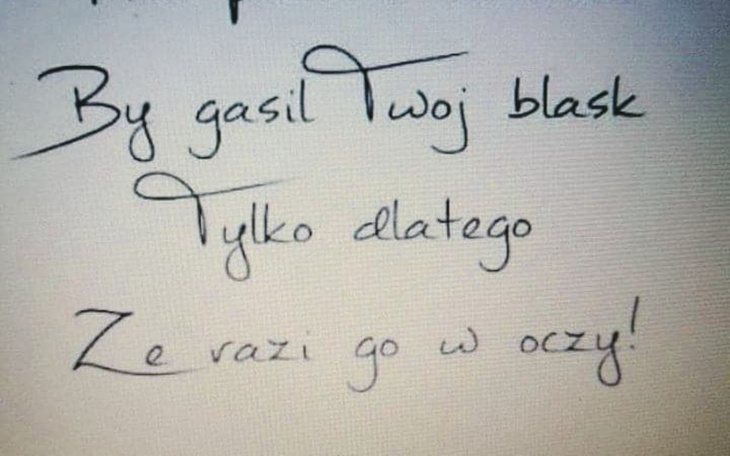 By gasil Twoj blask
Tylko dlatego
Ze razi go w oczy!